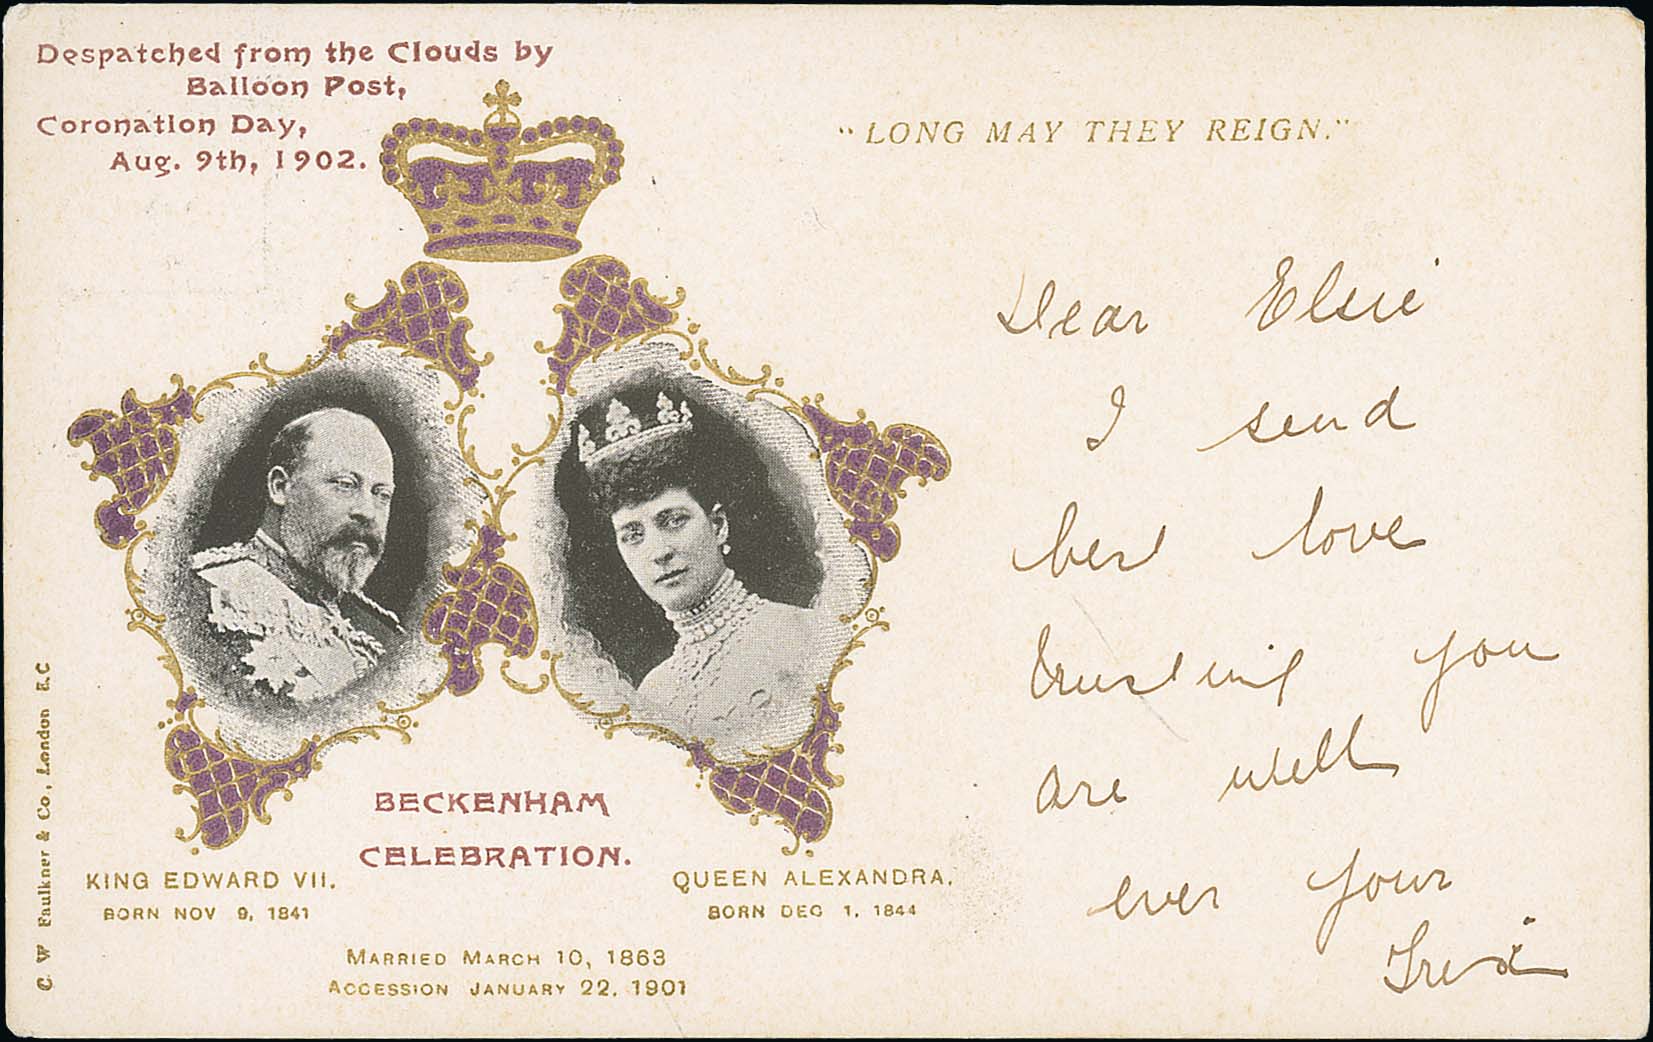 Despatched from the Clouds by
Balloon Post,
Coronation Day,
Aug. 9th, 1902.
"LONG MAY THEY REIGN."
Dear Elsie
I send
best love
trusting you
are well
ever your
Fred
BECKENHAM
CELEBRATION.
KING EDWARD VII.
BORN NOV 9, 1841
QUEEN ALEXANDRA.
BORN DEC 1, 1844
MARRIED MARCH 10, 1863
ACCESSION JANUARY 22, 1901
C. W Faulkner & Co., London E.C